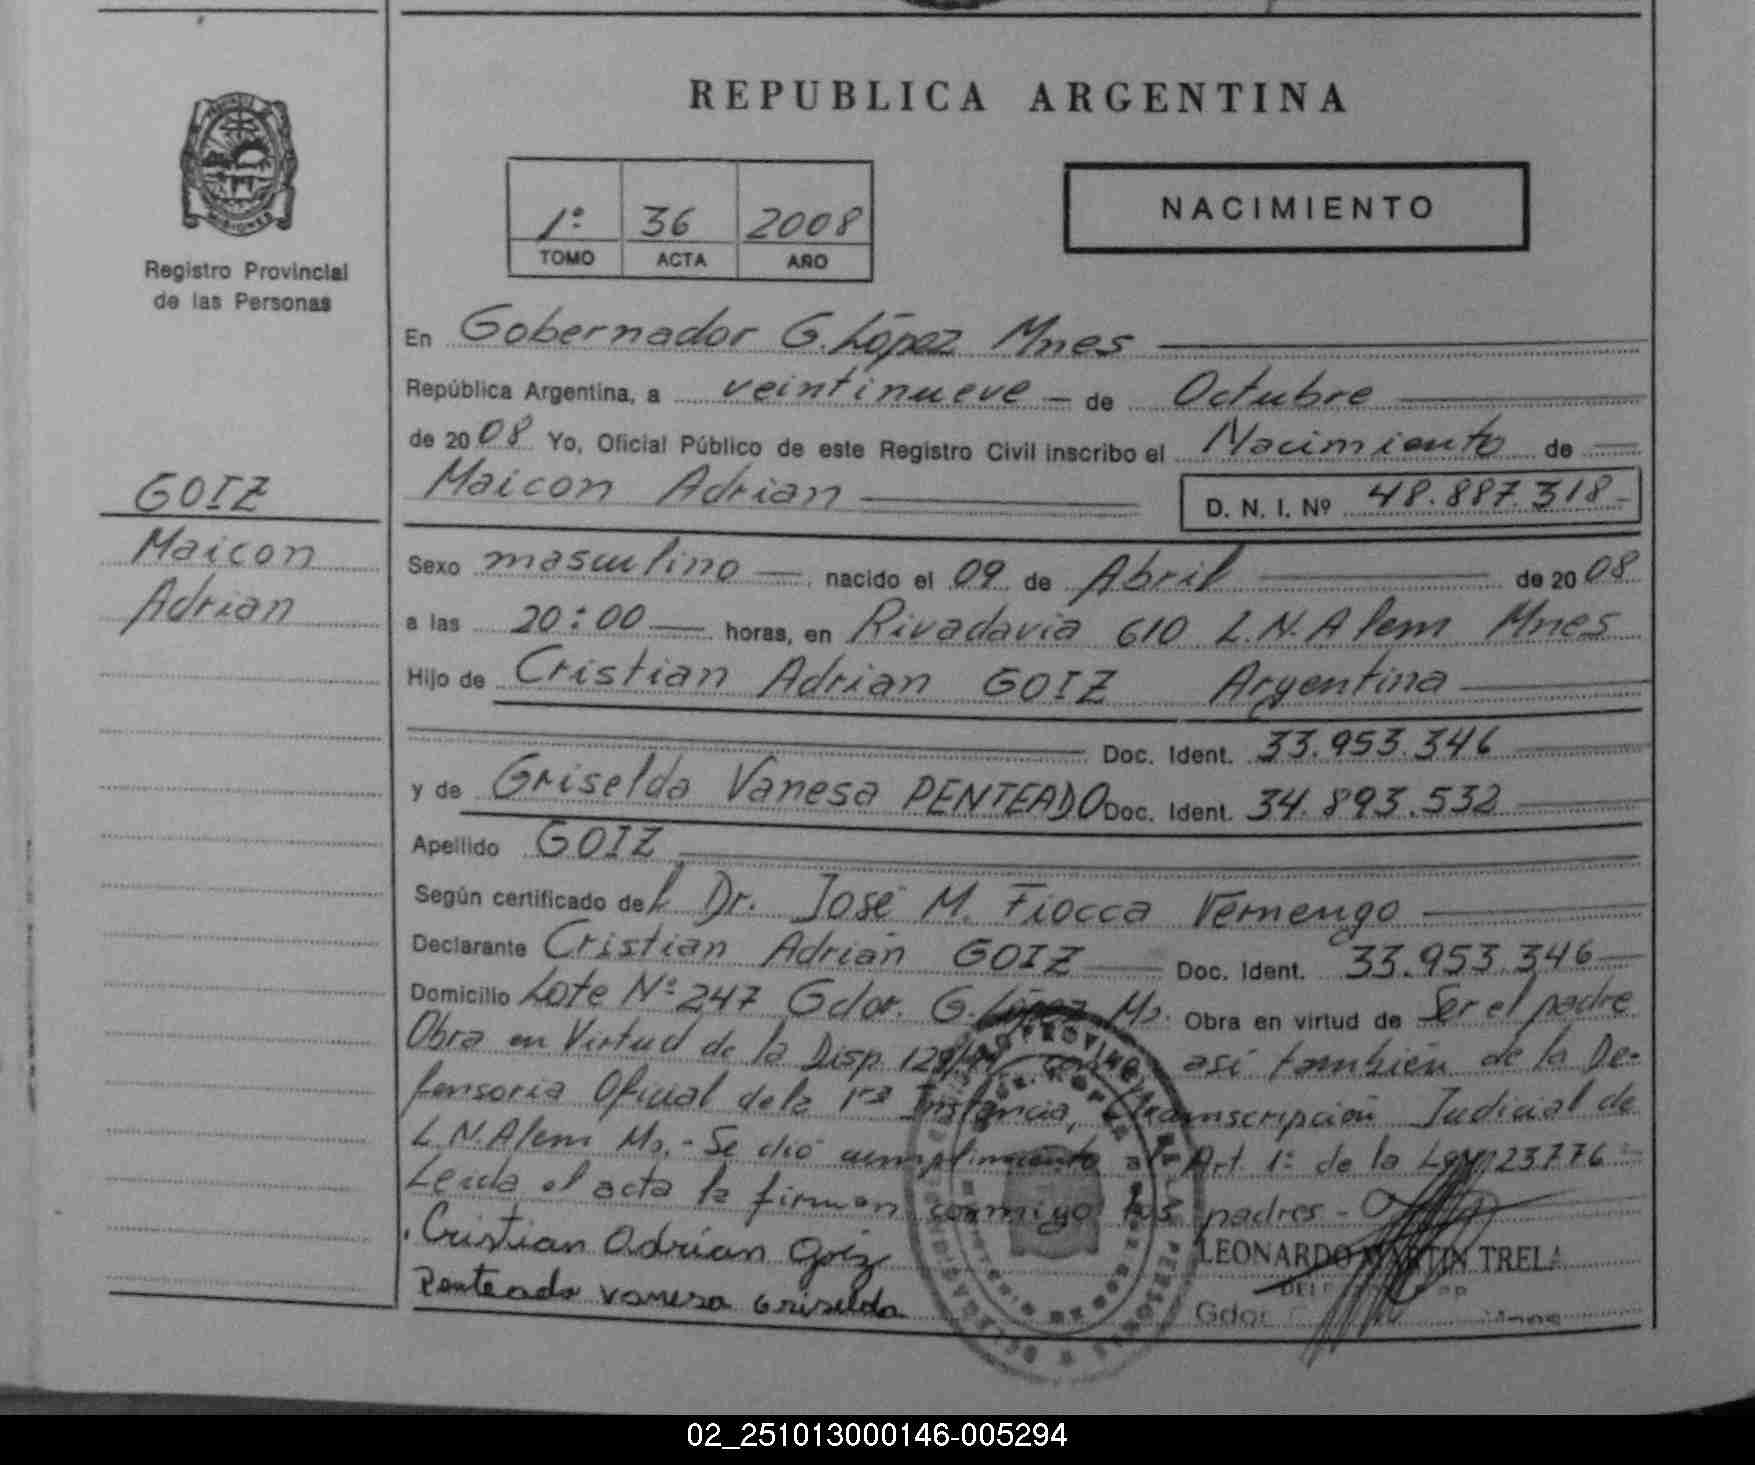 REPUBLICA ARGENTINA
NACIMIENTO
1º 36 2008
TOMO ACTA AÑO
MISIONES
Registro Provincial
de las Personas
GOIZ
Maicon
Adrian
En Gobernador G. López Mnes
República Argentina, a veintinueve de Octubre
de 2008 Yo, Oficial Público de este Registro Civil inscribo el Nacimiento de
Maicon Adrian D. N. I. Nº 48.887.318
Sexo masculino nacido el 09 de Abril de 2008
a las 20:00 horas, en Rivadavia 610 L.N.Alem Mnes
Hijo de Cristian Adrian GOIZ Argentina
Doc. Ident. 33.953.346
y de Griselda Vanesa PENTEADO Doc. Ident. 34.893.532
Apellido GOIZ
Según certificado del Dr. José M. Fiocca Vernengo
Declarante Cristian Adrián GOIZ Doc. Ident. 33.953.346
Domicilio Lote Nº 247 Gdor. G. López Ms. Obra en virtud de Ser el padre
Obra en Virtud de la Disp. así también de la De-
fensoria Oficial de la 1ra Instancia, transcripción Judicial de
L.N.Alem Ms.- Se dió cumplimiento al Art. 1º de la Ley 23776
Leida el acta la firman conmigo los padres-
Cristian Adrian Goiz
Penteado Vanesa Griselda
LEONARDO MARTIN TRELA
Gdor
02_251013000146-005294